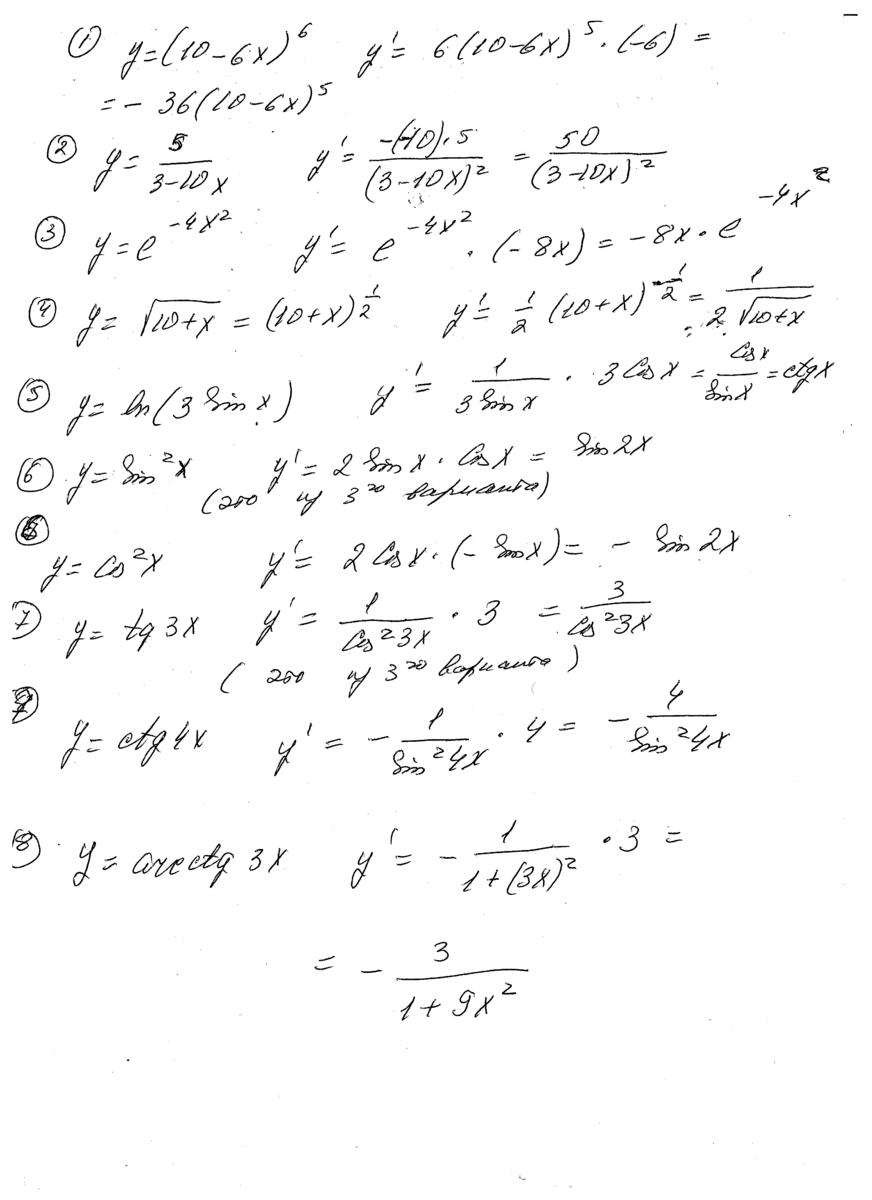 ① y=(10-6x)^6 y'= 6(10-6x)^5·(-6) =
= - 36(10-6x)^5
② y= 5/(3-10x) y'= (-(-10)·5)/((3-10x)^2) = 50/((3-10x)^2)
③ y=e^(-4x^2) y'= e^(-4x^2)·(-8x)= -8x·e^(-4x^2)
④ y= √(10+x) = (10+x)^(1/2) y'= 1/2 (10+x)^(-1/2) = 1/(2√(10+x))
⑤ y= ln(3 sin x) y' = 1/(3 sin x) · 3 cos x = cos x/sin x = ctg x
⑥ y= sin^2 x y'= 2 sin x · cos x = sin 2x
(это из 3го варианта)
⑥
y= cos^2 x y'= 2 cos x·(- sin x)= - sin 2x
⑦ y= tg 3x y' = 1/(cos^2 3x) · 3 = 3/(cos^2 3x)
( это из 3го варианта )
⑦
y= ctg 4x y' = - 1/(sin^2 4x) · 4 = - 4/(sin^2 4x)
⑧ y= arcctg 3x y'= - 1/(1+(3x)^2) · 3 =
= - 3/(1+ 9x^2)